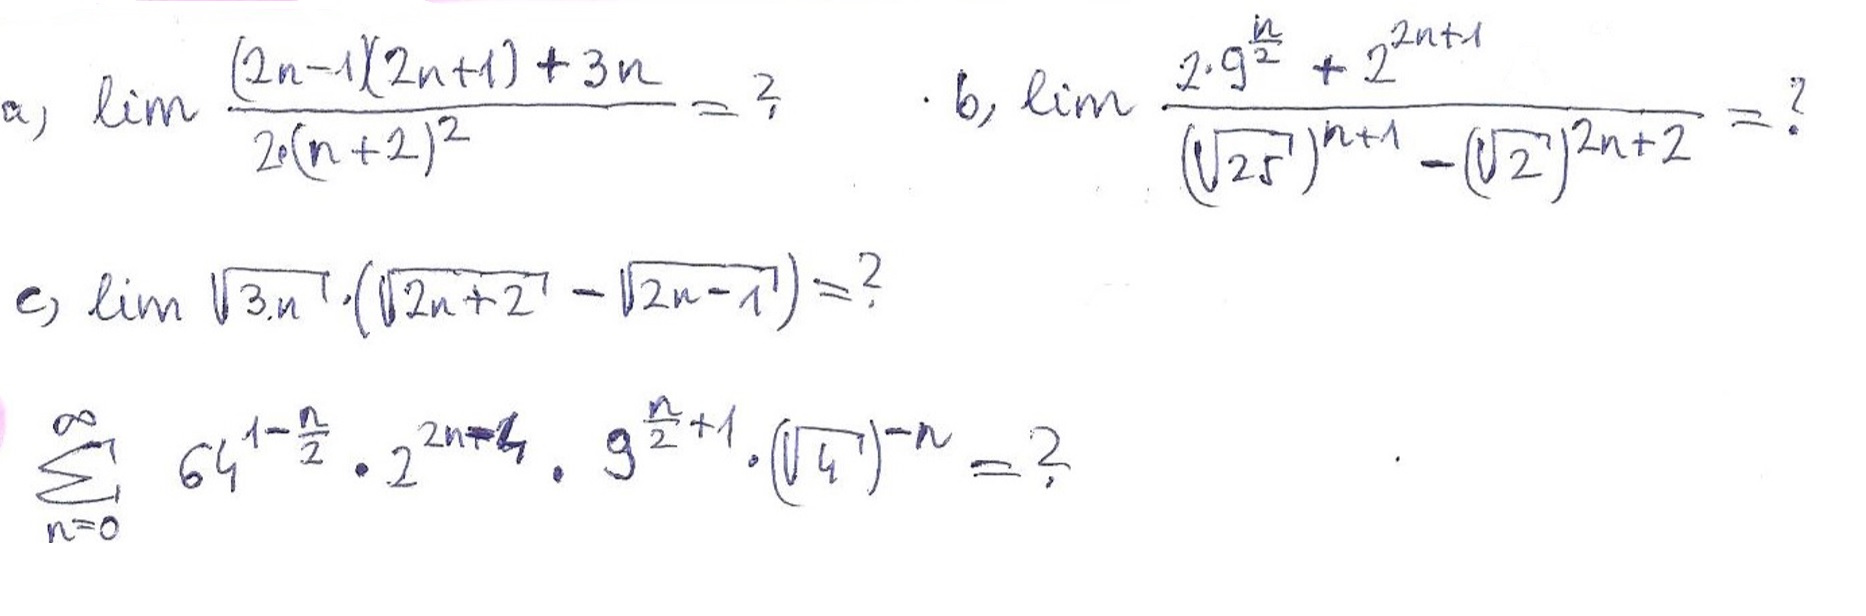 a, lim ((2n-1)(2n+1)+3n)/(2·(n+2)²) = ? b, lim (2·9^(n/2) + 2^(2n+1))/((√25)^(n+1) - (√2)^(2n+2)) = ?
c, lim √(3.n) · (√(2n+2) - √(2n-1)) = ?
∑_(n=0)^∞ 64^(1-n/2) · 2^(2n-4) · 9^(n/2+1) · (√4)^(-n) = ?